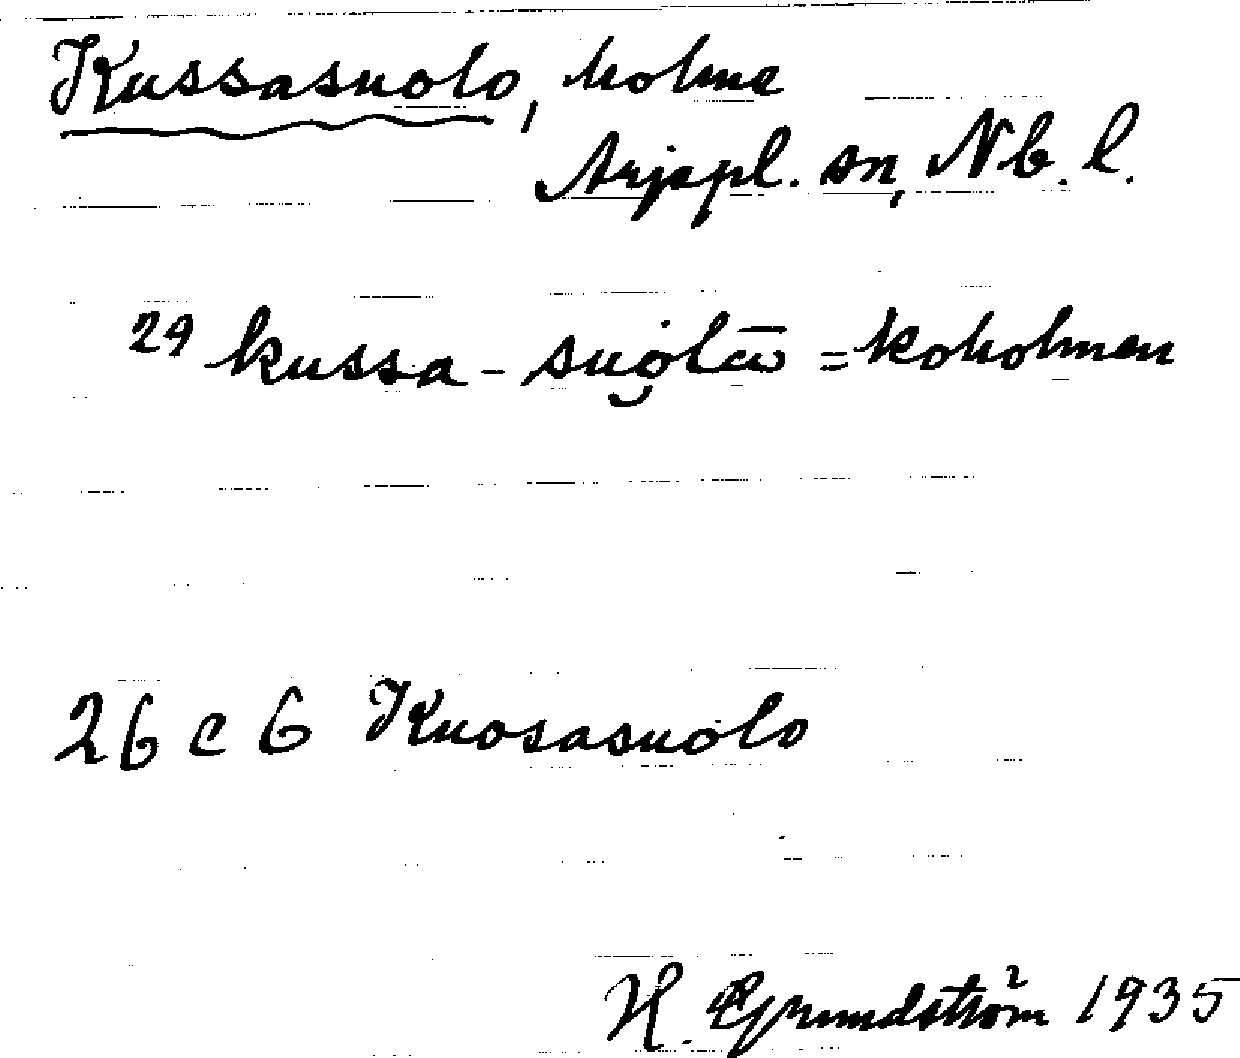 Kussasuolo, holme
Arjepl. sn, Nb. l.
29 kussa-suo̯lō = koholmen
26 c 6 Kuosasuolo
H. Grundström 1935